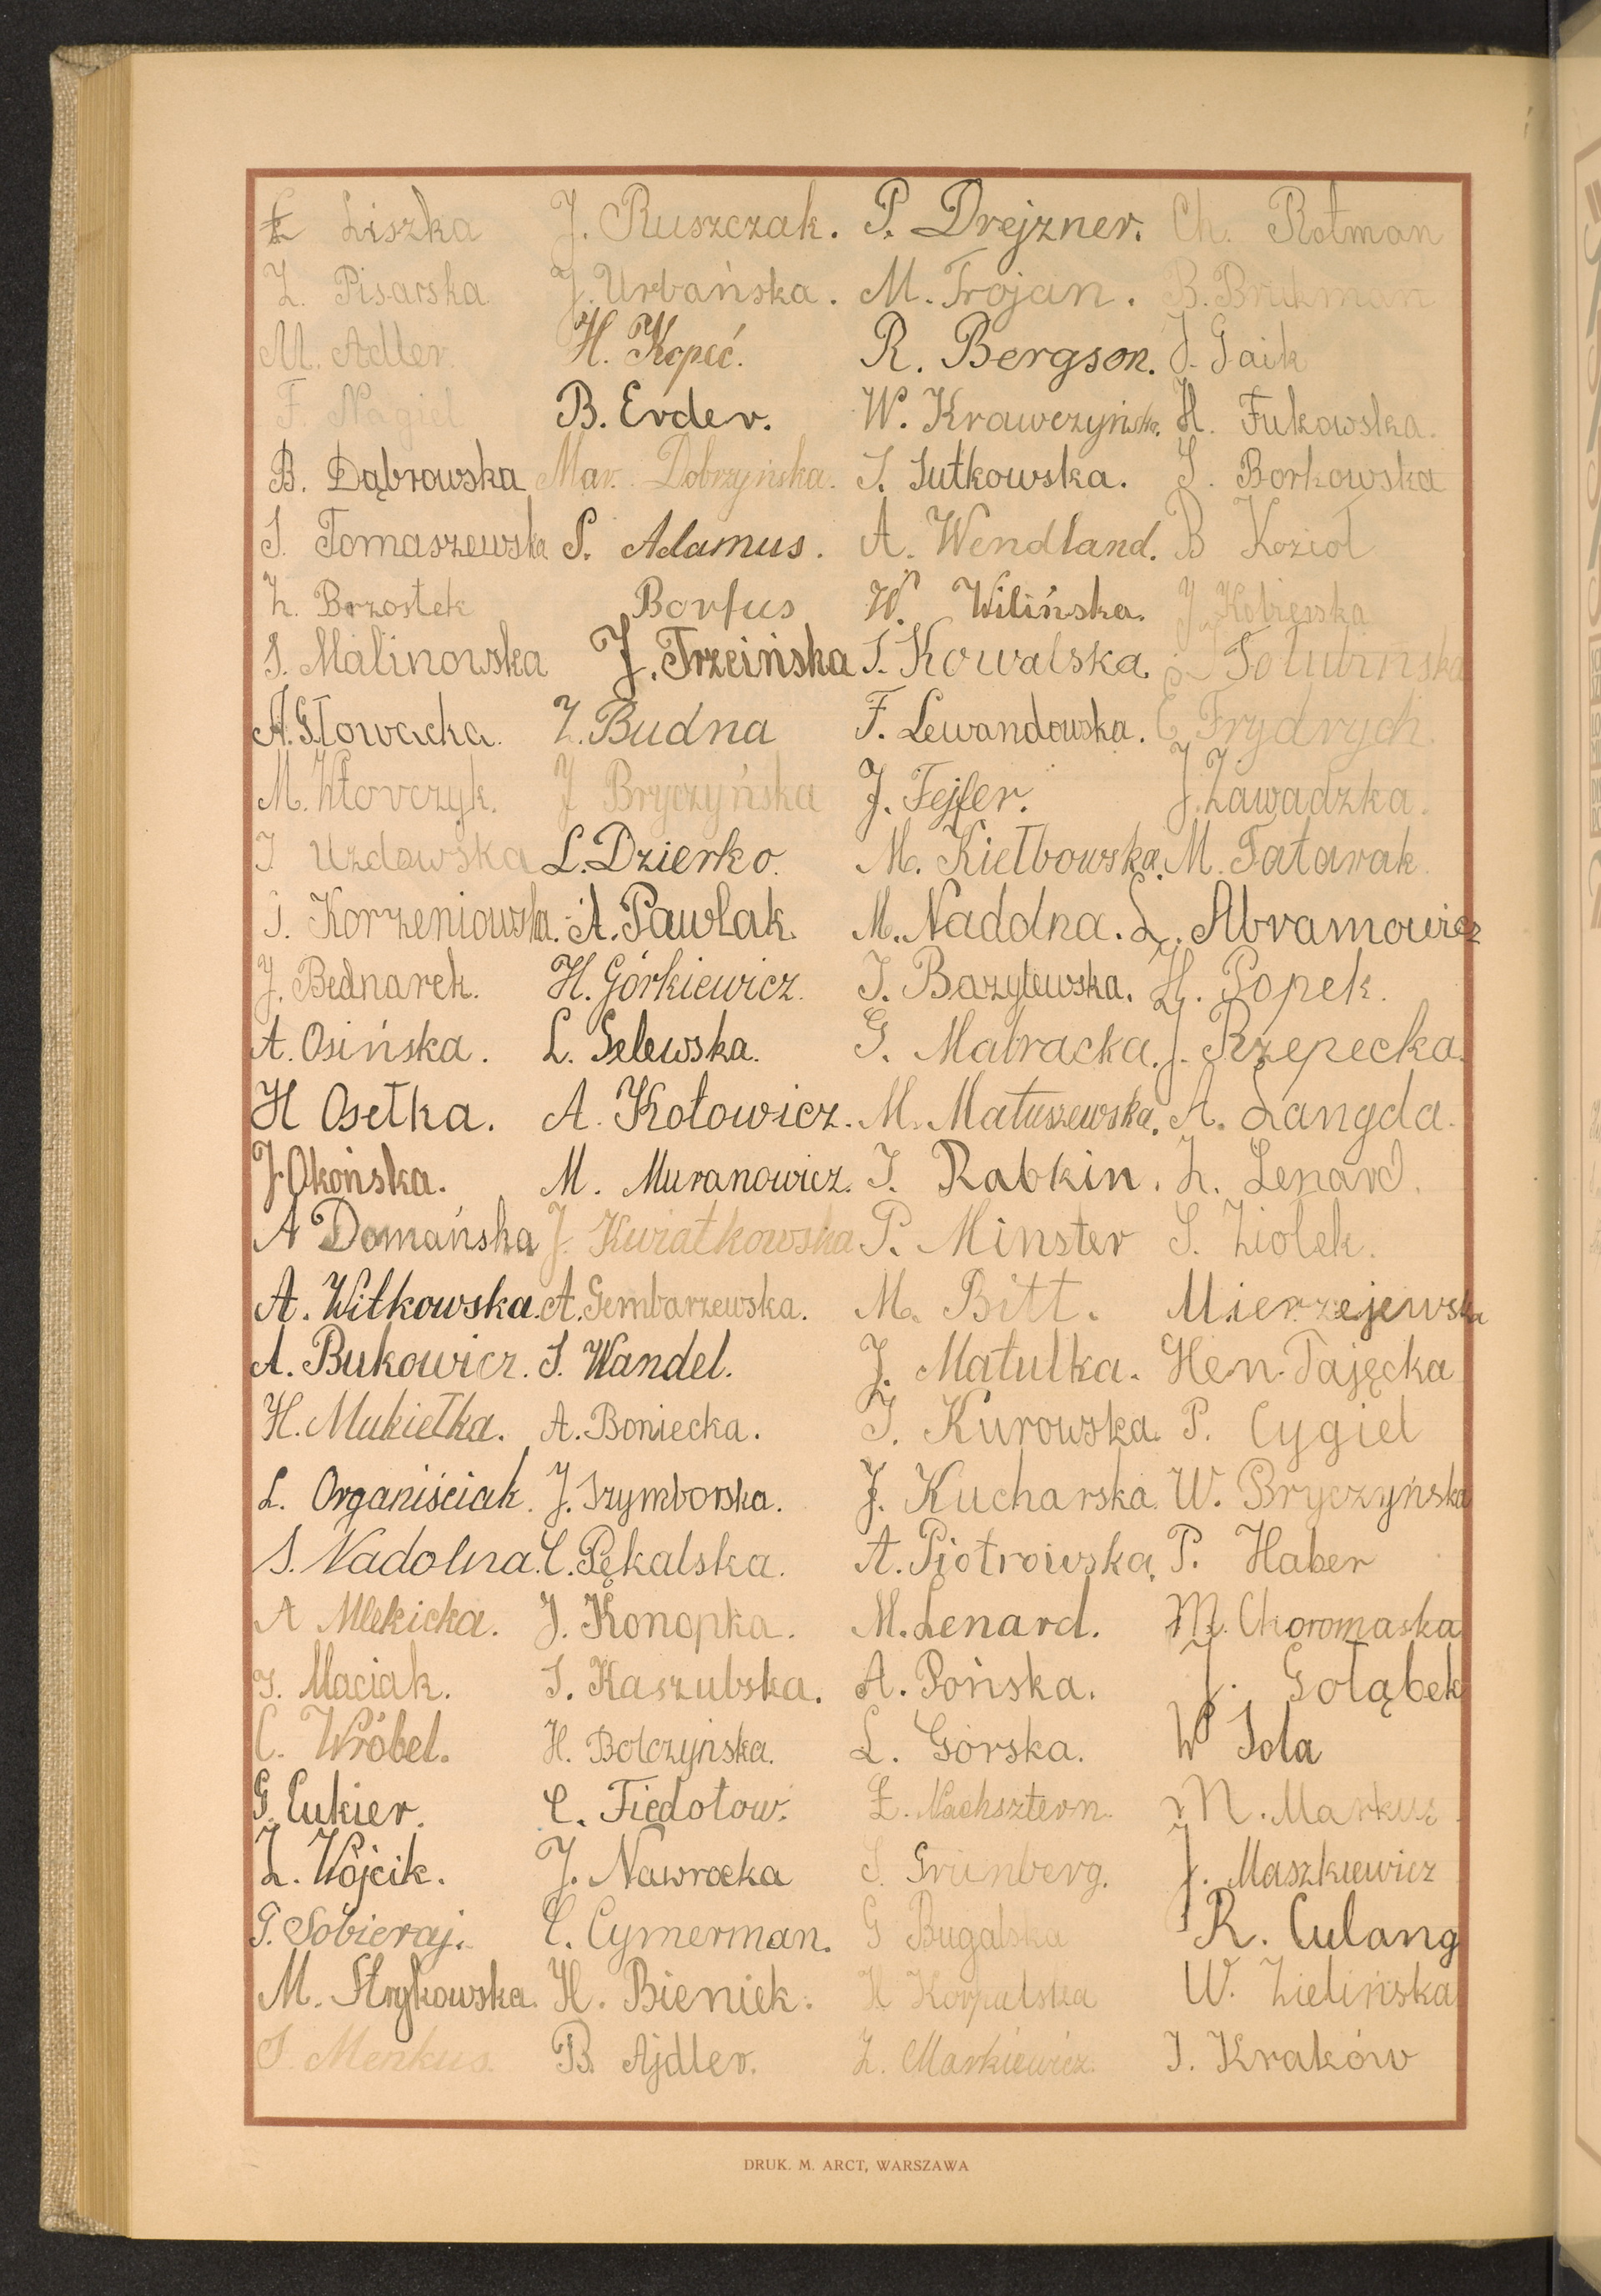 Ł Liszka J. Ruszczak. P. Drejzner. Ch. Rotman
Z. Pisarska J. Urbańska. M. Trojan. B. Brukman
M. Adler. H. Kopeć. R. Bergson. J. Gaik
F. Nagiel B. Erder. W. Krawczyńska. H. Fukowska.
B. Dąbrowska Mar. Dobrzyńska. S. Sutkowska. S. Borkowska
S. Tomaszewska S. Adamus. A. Wendland. B Kozioł
Z. Brzostek Borfus W. Wilińska. J. Kobierska
S. Malinowska J. Trzcińska S. Kowalska. Gołubińska
A. Głowacka. Z. Budna F. Lewandowska. E Frydrych
M. Wtorczyk. J Bryczyńska J. Fejfer. J. Zawadzka.
I Uzdowska L. Dzierko. M. Kiełbowska. M. Tatarak.
S. Korzeniowska. A. Pawlak. M. Nadolna. L. Abramowicz
J. Bednarek. H. Górkiewicz. I. Bazylewska. H. Popek.
A. Osińska. L. Gelewska. G. Mabracka. J. Rzepecka.
H Osełka. A. Kołowicz. M. Matuszewska. A. Langda.
J. Okońska. M. Muranowicz. I. Rabkin. Z. Lenard.
A Domańska J. Kwiatkowska P. Minster S. Ziolek.
A. Witkowska. A. Gembarzewska. M. Bitt. Mierzejewska
A. Bukowicz. S. Wandel. J. Matulka. Hen. Tajęcka
H. Mukiełka. A. Boniecka. I. Kurowska. P. Cygiel
L. Organiściak. J. Szymborska. J. Kucharska. W. Bryczyńska
S. Nadolna. C. Pękalska. A. Piotrowska. P. Haber
A Mlekicka. J. Konopka. M. Lenard. M. Choromaska
J. Maciak. S. Kaszubska. A. Pońska. J. Gołąbek
C. Wróbel. H. Bolczyńska. L. Górska. W Sola
G. Cukier. C. Fiedotow. Ł. Nachsztern. M. Markus.
L. Wójcik. J. Nawrocka S. Grünberg. J. Maszkiewicz
G. Sobieraj. C. Cymerman. G Bugalska R. Culang
M. Strykowska. H. Bieniek. H Korpalska W. Zielińska
S. Menkus. B. Ajdler. Z. Markiewicz. I. Kraków
DRUK. M. ARCT, WARSZAWA